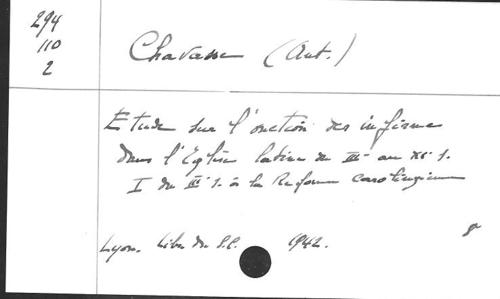 294
110
2
Chavasse (Ant.)
Etude sur l'onction des infirmes
dans l'Eglise latine du IIIe au XIe s.
I du IIIe s. à la Reforme carolingienne
Lyon. Libr. du S.C. 1942. 8°